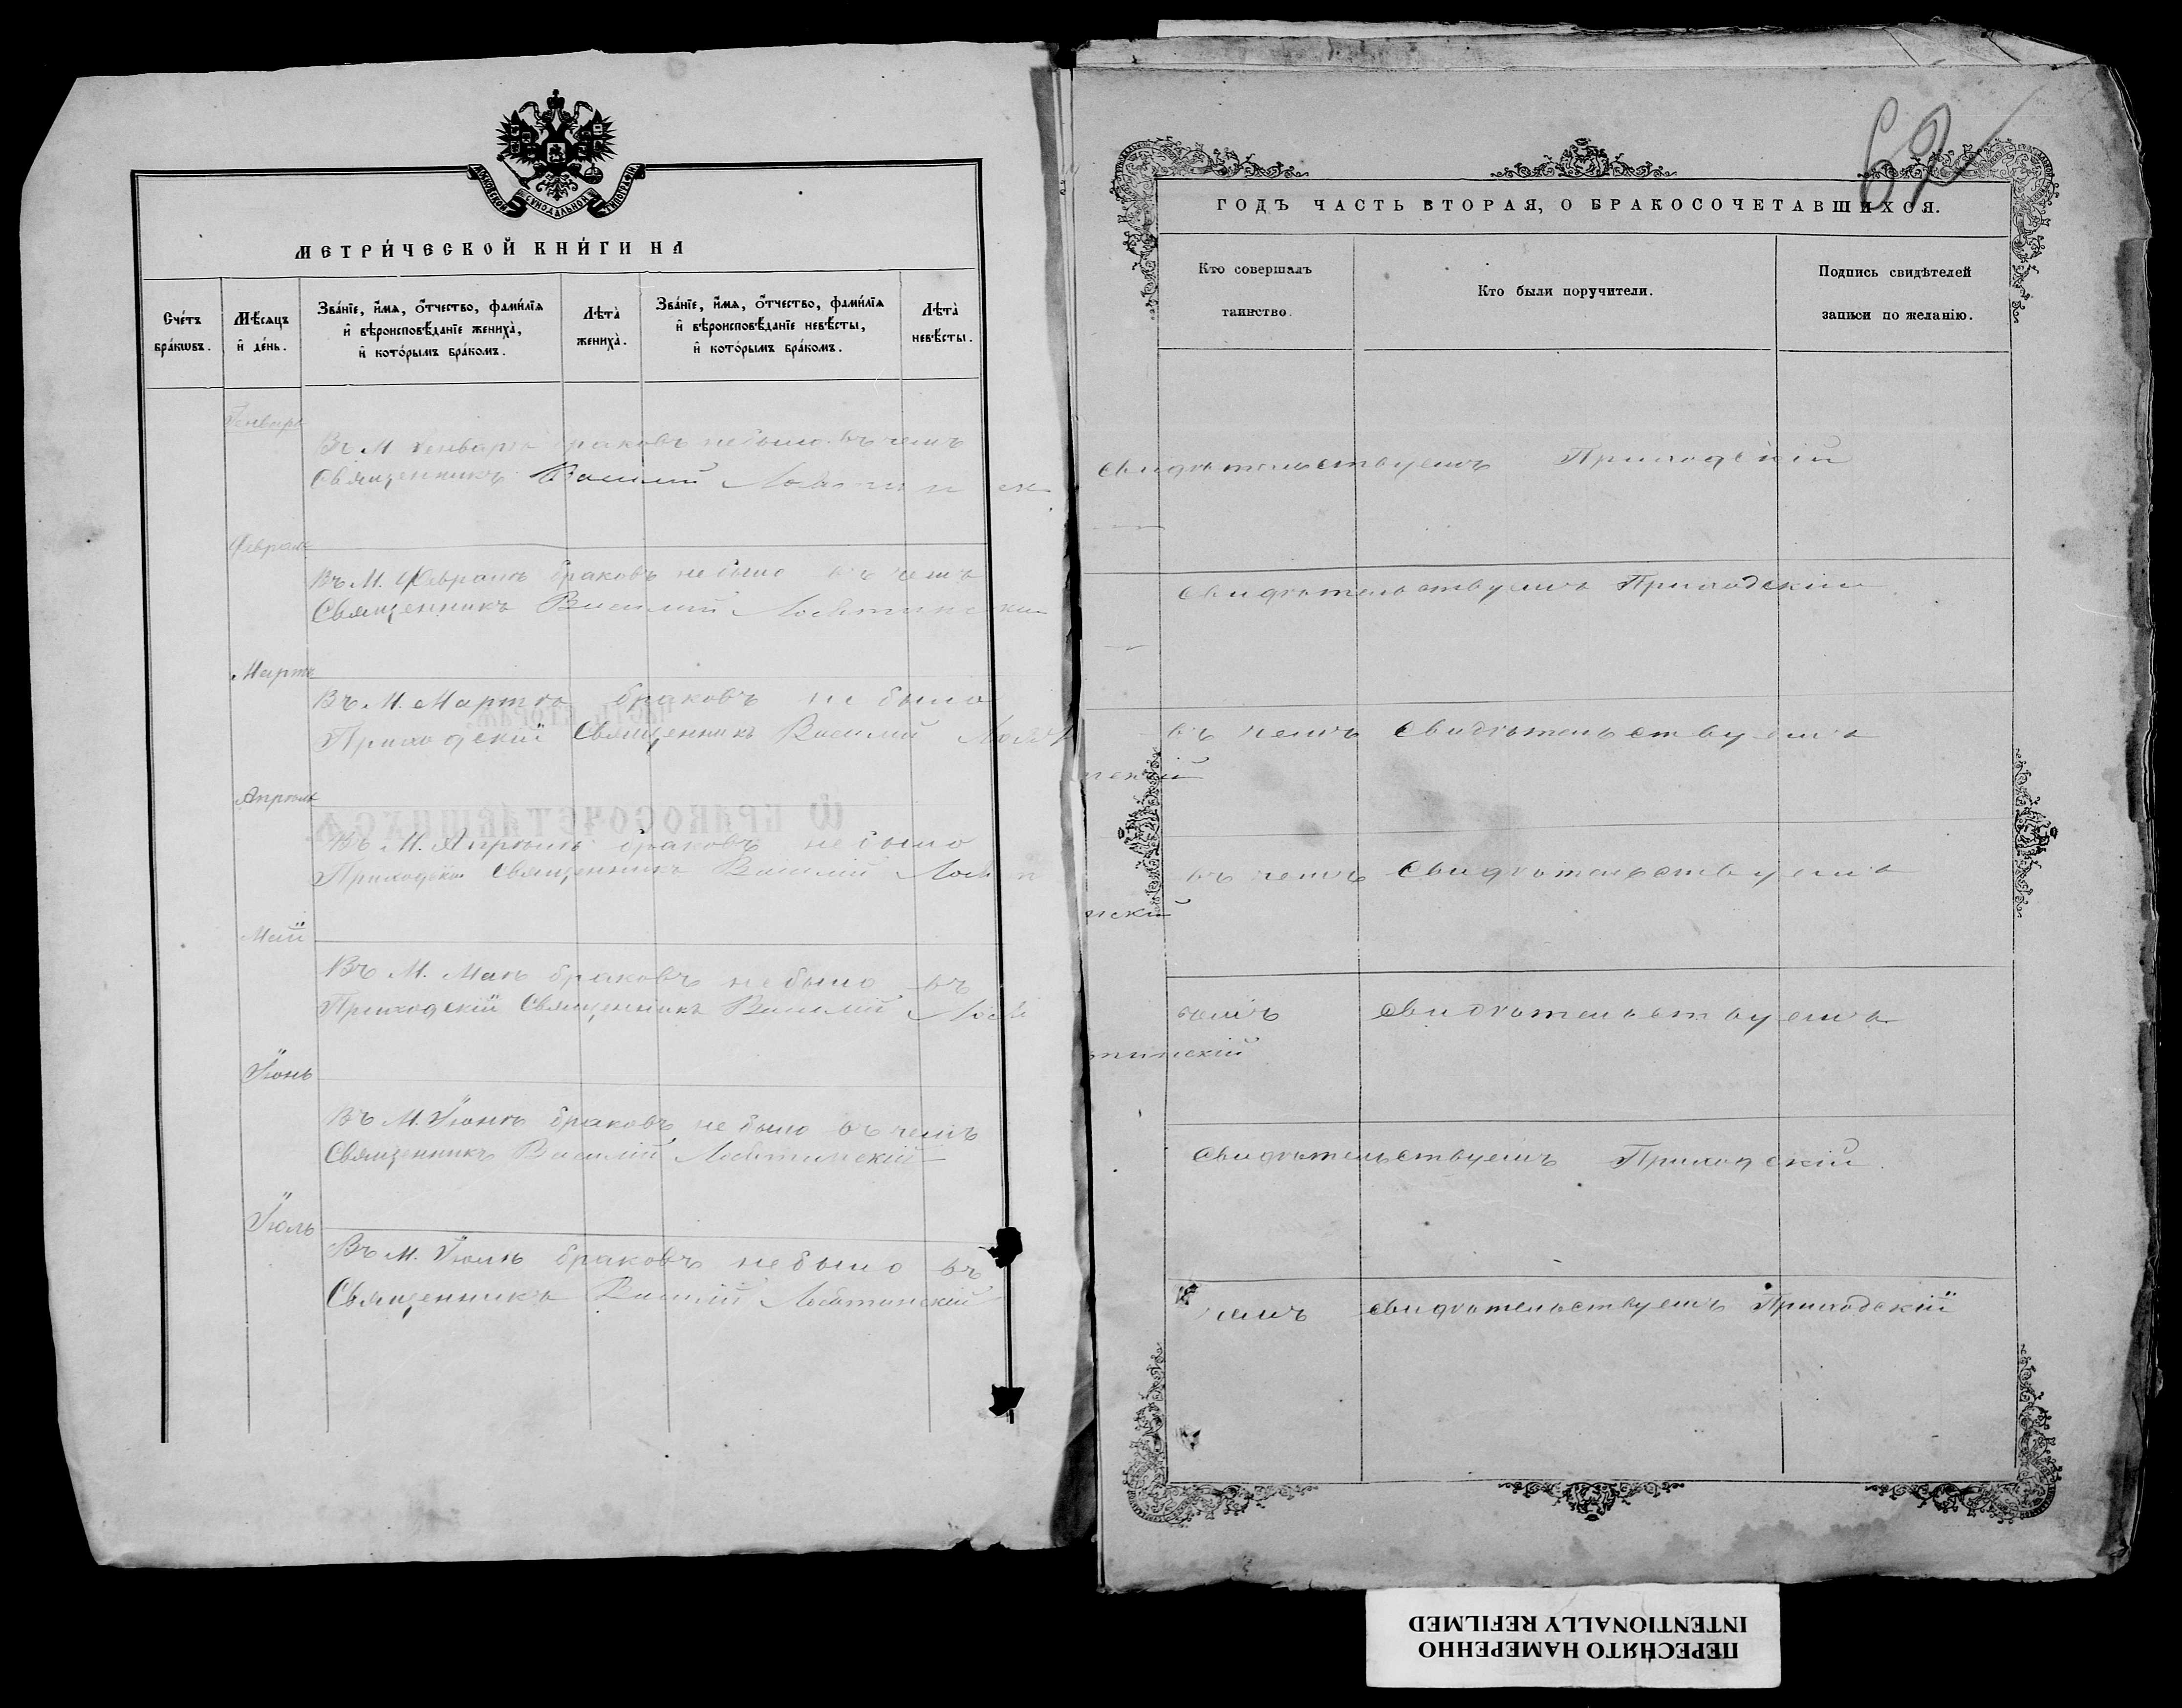 МОСКОВСКОЙ СѴНОДАЛЬНОЙ ТИПОГРАФІИ
МЕТРИ́ЧЕСКОЙ КНИ́ГИ НА
Сче́тъ бра́кѡвъ.
Мѣ́сяцъ и҆ де́нь.
Зва́нїе, и҆́мѧ, ѻ҆́тчество, фами́лїѧ и҆ вѣроисповѣ́данїе жениха̀, и҆ кото́рымъ бра́комъ.
Лѣта̀ жениха̀.
Зва́нїе, и҆́мѧ, ѻ҆́тчество, фами́лїѧ и҆ вѣроисповѣ́данїе невѣ́сты, и҆ кото́рымъ бра́комъ.
Лѣта̀ невѣ́сты.
Генварь
Въ М. Генварѣ браковъ небыло въ чемъ
Священникъ Василій
Февраль
Въ М. Февралѣ браковъ небыло въ чемъ
Священникъ Василій
Мартъ
Въ М. Мартѣ браковъ не было
Приходскій Священникъ Василій
Апрѣль
Въ М. Апрѣлѣ браковъ не было
Приходскій Священникъ Василій
Май
Въ М. Маѣ браковъ небыло въ
Приходскій Священникъ Василій
Іюнь
Въ М. Іюнѣ браковъ не было въ чемъ
Священникъ Василій
Іюль
Въ М. Іюлѣ браковъ небыло въ
Священникъ Василій
62
ГОДЪ ЧАСТЬ ВТОРАЯ, О БРАКОСОЧЕТАВШИХСЯ.
Кто совершалъ
таинство.
Кто были поручители.
Подпись свидѣтелей
записи по желанію.
свидѣтельствуемъ Приходскій
свидѣтельствуемъ Приходскій
въ чемъ свидѣтельствуемъ
нскій
въ чемъ свидѣтельствуемъ
нскій
чемъ свидѣтельствуемъ
тинскій
свидѣтельствуемъ Приходскій
чемъ свидѣтельствуемъ Приходскій
ПЕРЕСНЯТО НАМЕРЕННО
INTENTIONALLY REFILMED